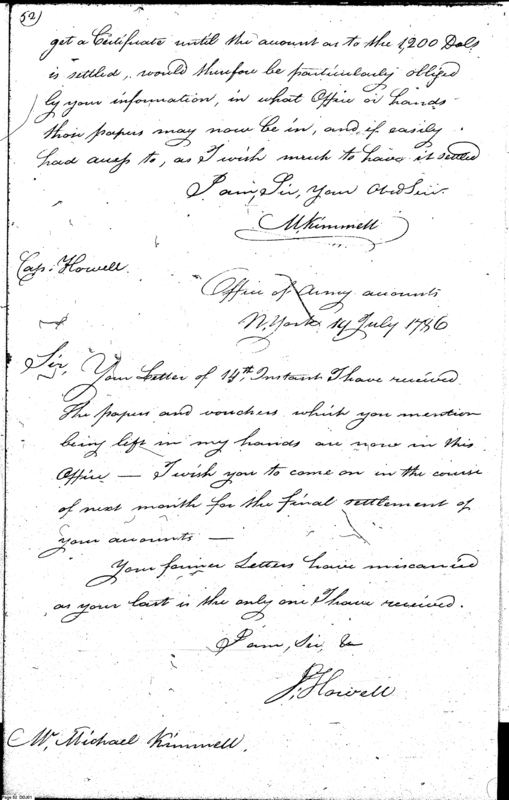 52)
get a Certificate until the account as to the 1,200 Dols
is settled, would therefore be particularly obliged
by your information, in what Office or hands
those papers may now be in, and if easily
had access to, as I wish much to have it settled
I am, Sir, Your Obed Serv.
M. Kimmell
Cap. Howell.
Office of Army accounts
N. York 19 July 1786
Sir,
Your Letter of 14th Instant I have received
The papers and vouchers which you mention
being left in my hands are now in this
Office — I wish you to come on in the course
of next month for the final settlement of
your accounts —
Your former Letters have miscarried
as your last is the only one I have received.
I am, Sir, &
J. Howell
Mr. Michael Kimmell.